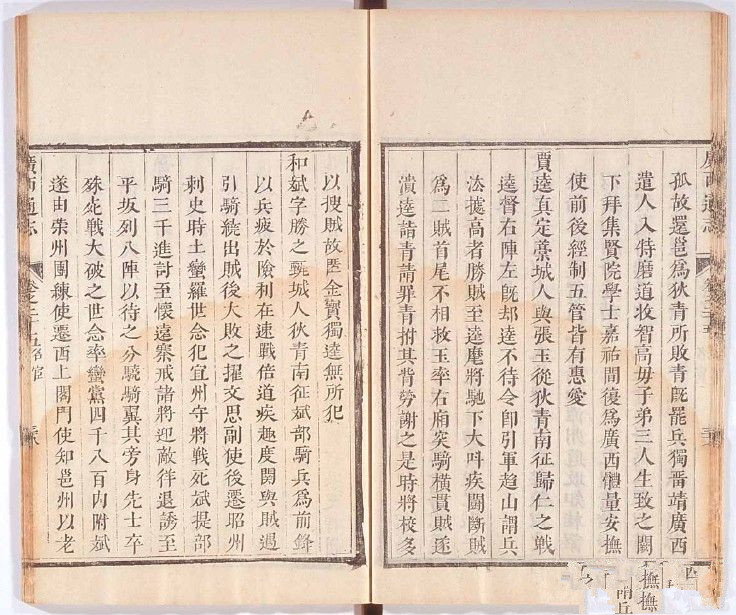 廣西通志
孤故還邕為狄青所敗青旣罷兵獨畱靖廣西
遣人入特磨道妝智高毋子弟三人生致之闕
下拜集賢院學士嘉祐間復為廣西體量安撫
使前後經制五管皆有惠愛
賈逵真定藁城人與張玉從狄青南征歸仁之戰
逵督右陣左旣却逵不待令即引軍趋山謂兵
法據高者勝賊至逵麾將馳下大呌疾鬪斷賊
為二賊首尾不相救玉率右廂突騎橫貫賊遂
潰逵請青請罪青拊其背勞謝之是時將校多
以捜賊故匿金寶獨逵無所犯
和斌字勝之甄城人狄青南征斌部騎兵為前鋒
以兵疲於險利在速戰倍道疾趣度関與賊遇
引騎繞出賊後大敗之擢文思副使後遷昭州
刺史時土蠻羅世念犯宜州守將戰死斌提部
騎三千進討至懷遠寨戒諸將迎敵徉退誘至
平坂列八陣以待之分驍騎翼其旁身先士卒
殊死戰大破之世念率蠻黨四千八百内附斌
遂由榮州團練使遷西上閣門使知邕州以老
廣西通志 卷之二十五名宦
撫
撫